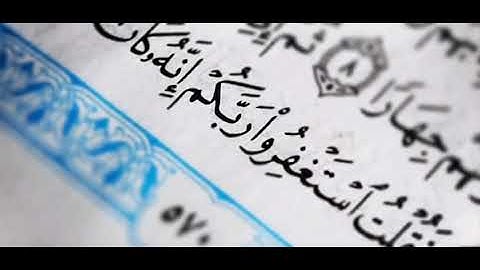 ثُمَّ
جِهَارًا ٨
فَقُلْتُ ٱسْتَغْفِرُوا۟ رَبَّكُمْ إِنَّهُۥ كَانَ
٥٧٠